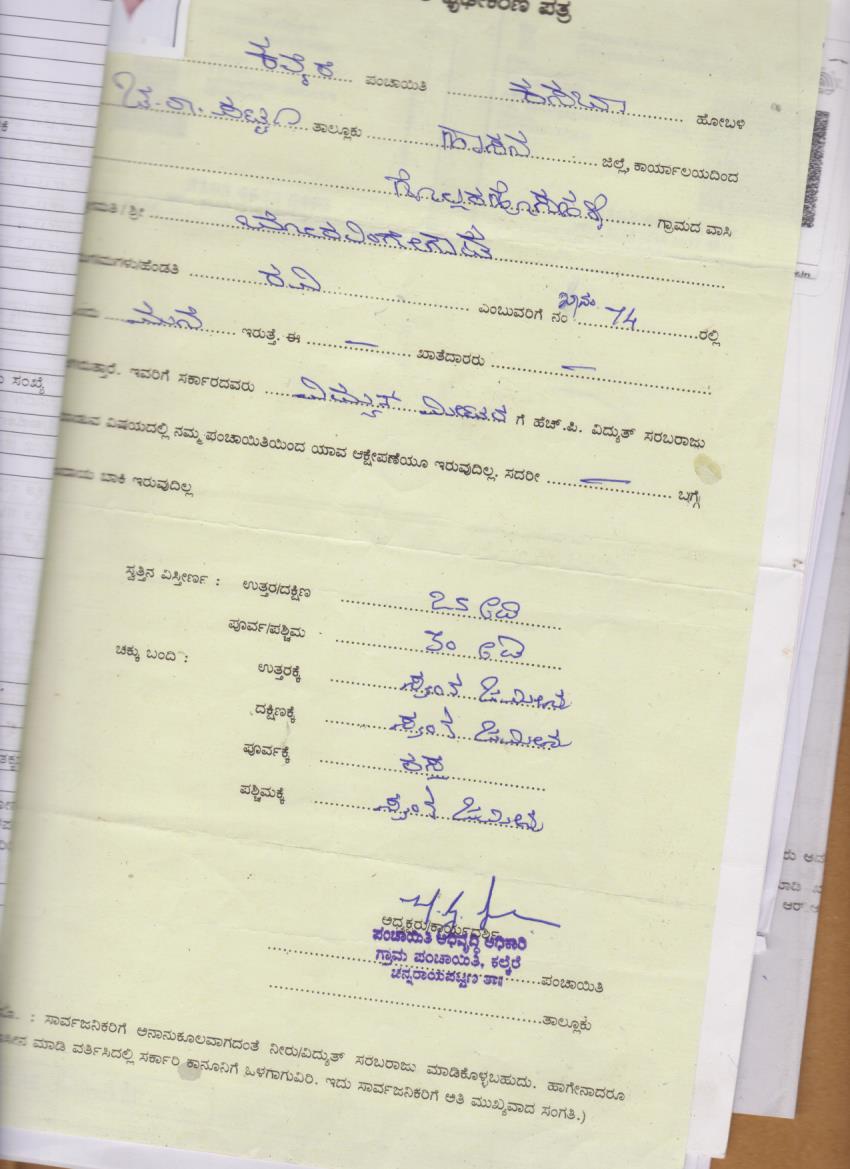 ದೃಢೀಕರಣ ಪತ್ರ
ಕಲ್ಕೆರೆ ಪಂಚಾಯಿತಿ ಕಸಬಾ ಹೋಬಳಿ
ಚ.ರಾ. ಪಟ್ಟಣ ತಾಲ್ಲೂಕು ಹಾಸನ ಜಿಲ್ಲೆ, ಕಾರ್ಯಾಲಯದಿಂದ
ಗ್ರಾಮದ ವಾಸಿ
ಮತಿ / ಶ್ರೀ
ಮಗ/ಮಗಳು/ಹೆಂಡತಿ ರವಿ ಎಂಬುವರಿಗೆ ನಂ 74 ರಲ್ಲಿ
ಮನೆ ಇರುತ್ತೆ. ಈ — ಖಾತೆದಾರರು —
ಇವರಿಗೆ ಸರ್ಕಾರದವರು ವಿದ್ಯುತ್ ಗೆ ಹೆಚ್.ಪಿ. ವಿದ್ಯುತ್ ಸರಬರಾಜು
ಮಾಡುವ ವಿಷಯದಲ್ಲಿ ನಮ್ಮ ಪಂಚಾಯಿತಿಯಿಂದ ಯಾವ ಆಕ್ಷೇಪಣೆಯೂ ಇರುವುದಿಲ್ಲ. ಸದರೀ — ಬಗ್ಗೆ
ಬಾಕಿ ಇರುವುದಿಲ್ಲ
ಸ್ವತ್ತಿನ ವಿಸ್ತೀರ್ಣ : ಉತ್ತರ/ದಕ್ಷಿಣ
ಪೂರ್ವ/ಪಶ್ಚಿಮ
ಚಕ್ಕು ಬಂದಿ : ಉತ್ತರಕ್ಕೆ ಸ್ವಂತ ಜಮೀನು
ದಕ್ಷಿಣಕ್ಕೆ ಸ್ವಂತ ಜಮೀನು
ಪೂರ್ವಕ್ಕೆ ರಸ್ತೆ
ಪಶ್ಚಿಮಕ್ಕೆ ಸ್ವಂತ ಜಮೀನು
ಅಧ್ಯಕ್ಷರು/ಕಾರ್ಯದರ್ಶಿ
ಪಂಚಾಯಿತಿ ಅಭಿವೃದ್ಧಿ ಅಧಿಕಾರಿ
ಗ್ರಾಮ ಪಂಚಾಯಿತಿ, ಕಲ್ಕೆರೆ
ಚನ್ನರಾಯಪಟ್ಟಣ ತಾ॥
ಪಂಚಾಯಿತಿ
ತಾಲ್ಲೂಕು
: ಸಾರ್ವಜನಿಕರಿಗೆ ಅನಾನುಕೂಲವಾಗದಂತೆ ನೀರು/ವಿದ್ಯುತ್ ಸರಬರಾಜು ಮಾಡಿಕೊಳ್ಳಬಹುದು. ಹಾಗೇನಾದರೂ
ಮಾಡಿ ವರ್ತಿಸಿದಲ್ಲಿ ಸರ್ಕಾರಿ ಕಾನೂನಿಗೆ ಒಳಗಾಗುವಿರಿ. ಇದು ಸಾರ್ವಜನಿಕರಿಗೆ ಅತಿ ಮುಖ್ಯವಾದ ಸಂಗತಿ.)
ಸಂಖ್ಯೆ